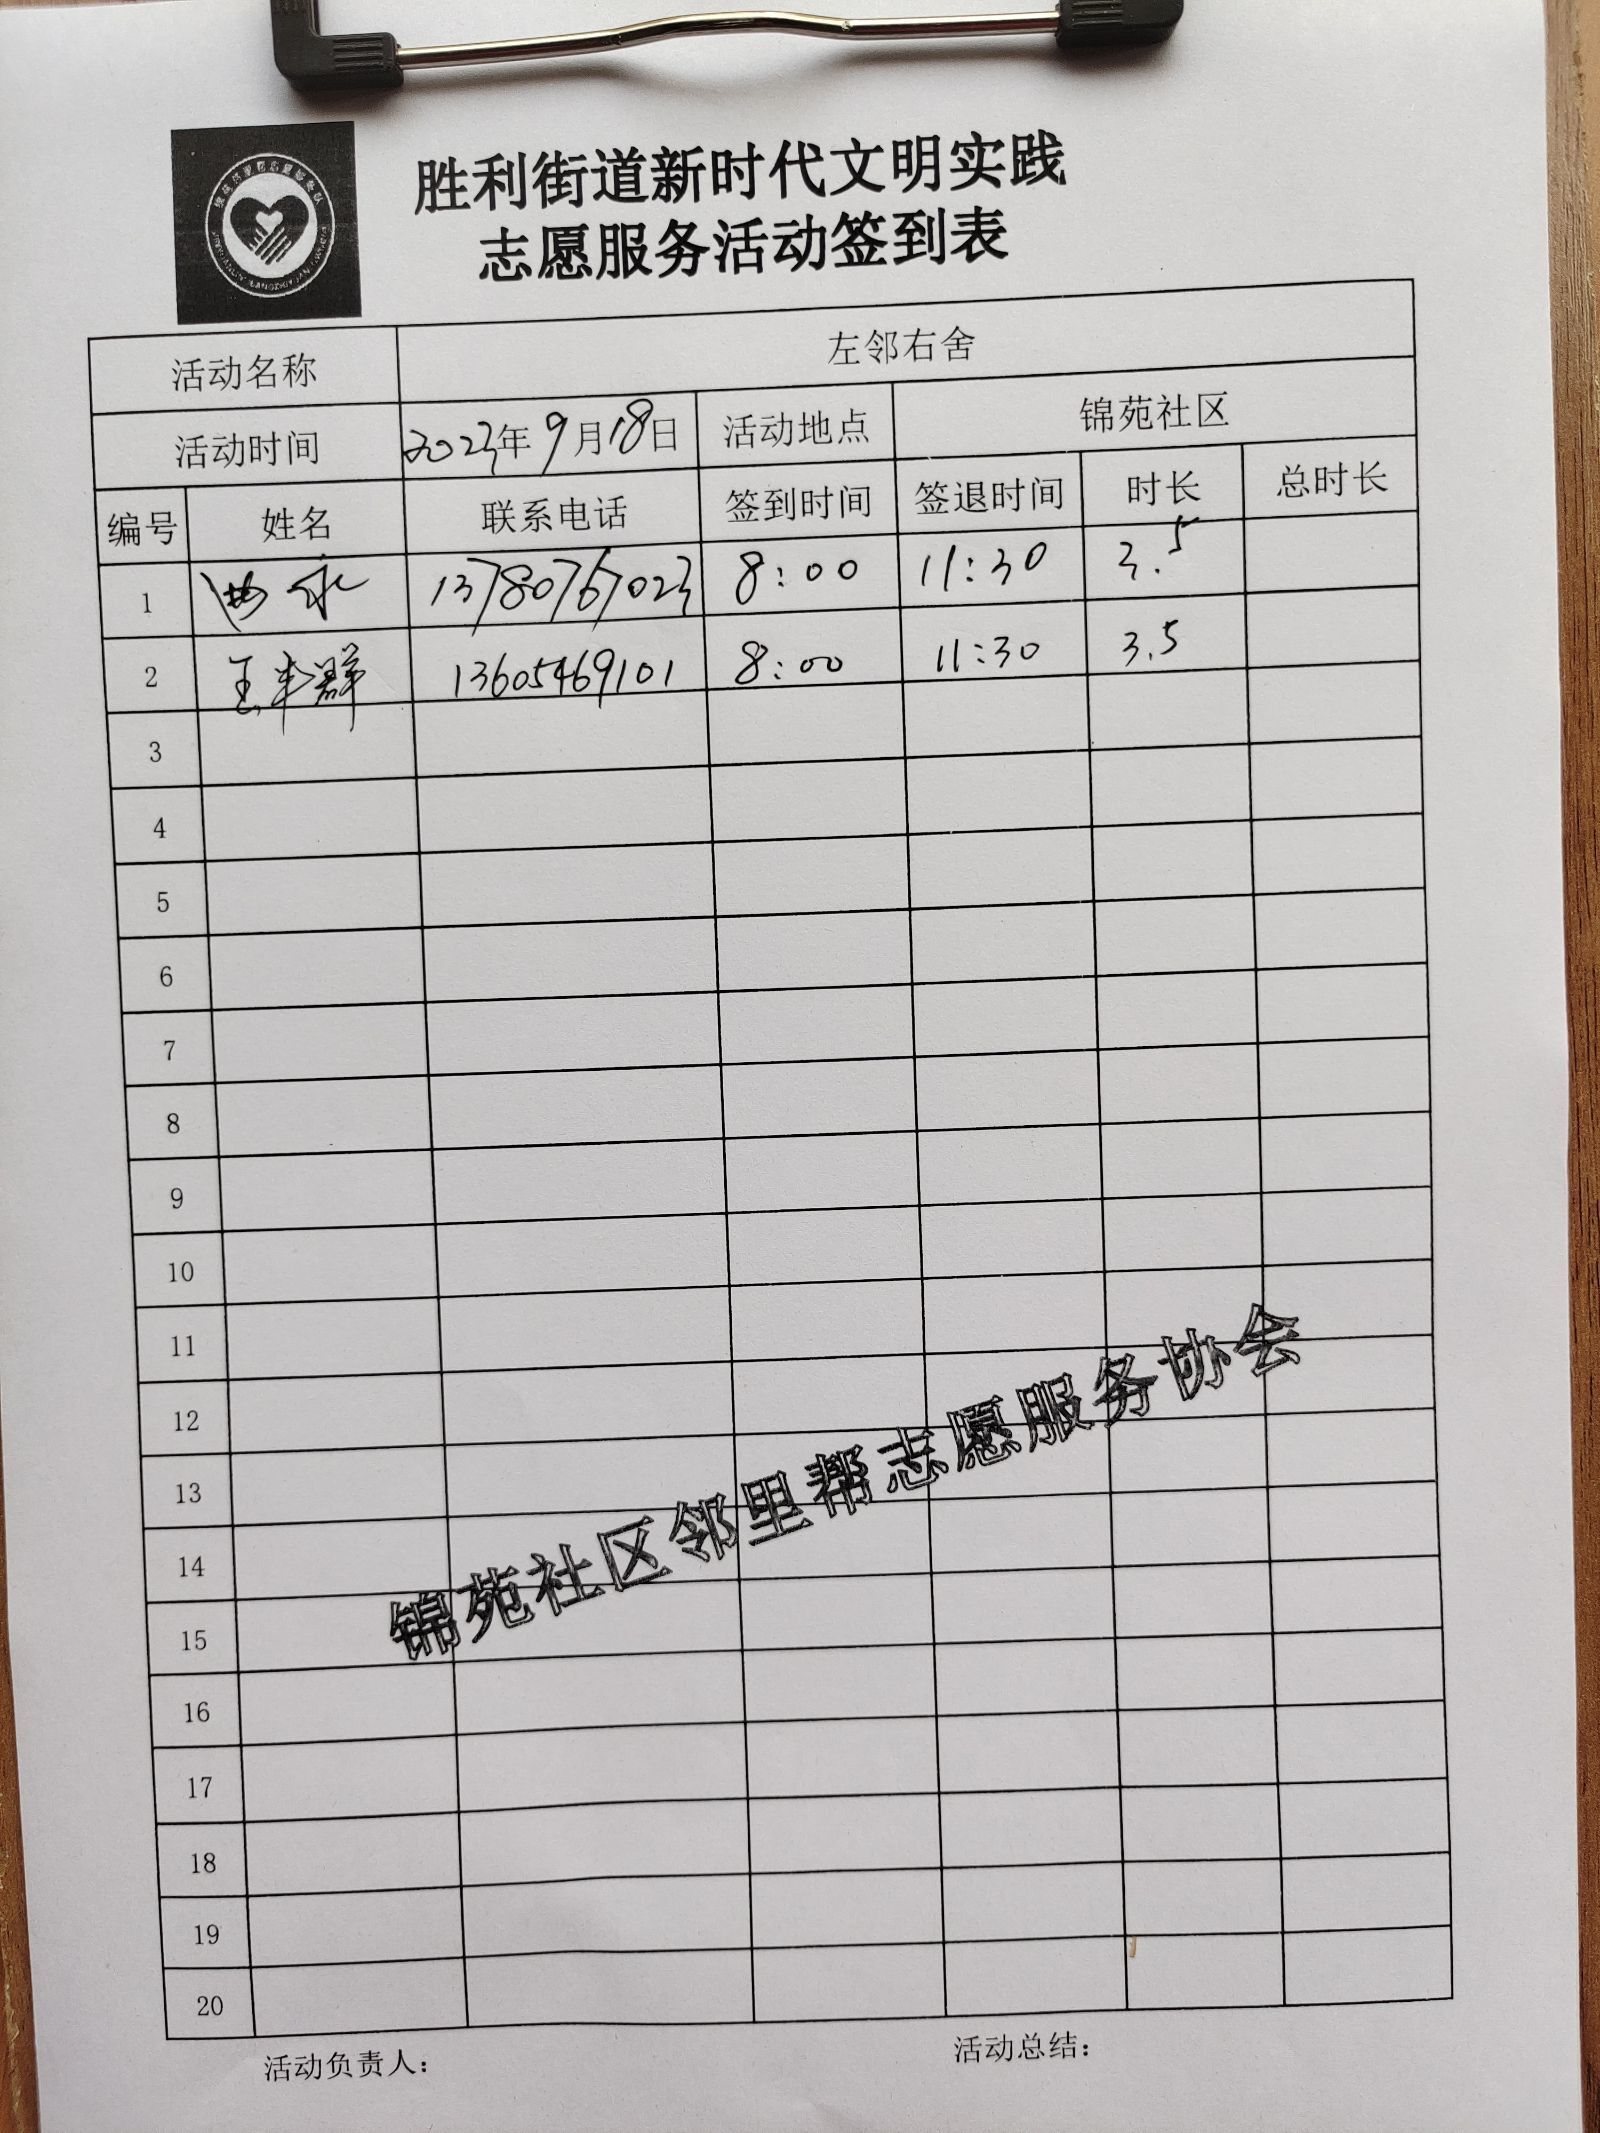 胜利街道新时代文明实践
志愿服务活动签到表
活动名称 左邻右舍
活动时间 2023年9月18日 活动地点 锦苑社区
编号 姓名 联系电话 签到时间 签退时间 时长 总时长
1 13780767023 8:00 11:30 3.5
2 13605469101 8:00 11:30 3.5
3
4
5
6
7
8
9
10
11
12
13
14
15
16
17
18
19
20
锦苑社区邻里帮志愿服务协会
活动负责人： 活动总结：